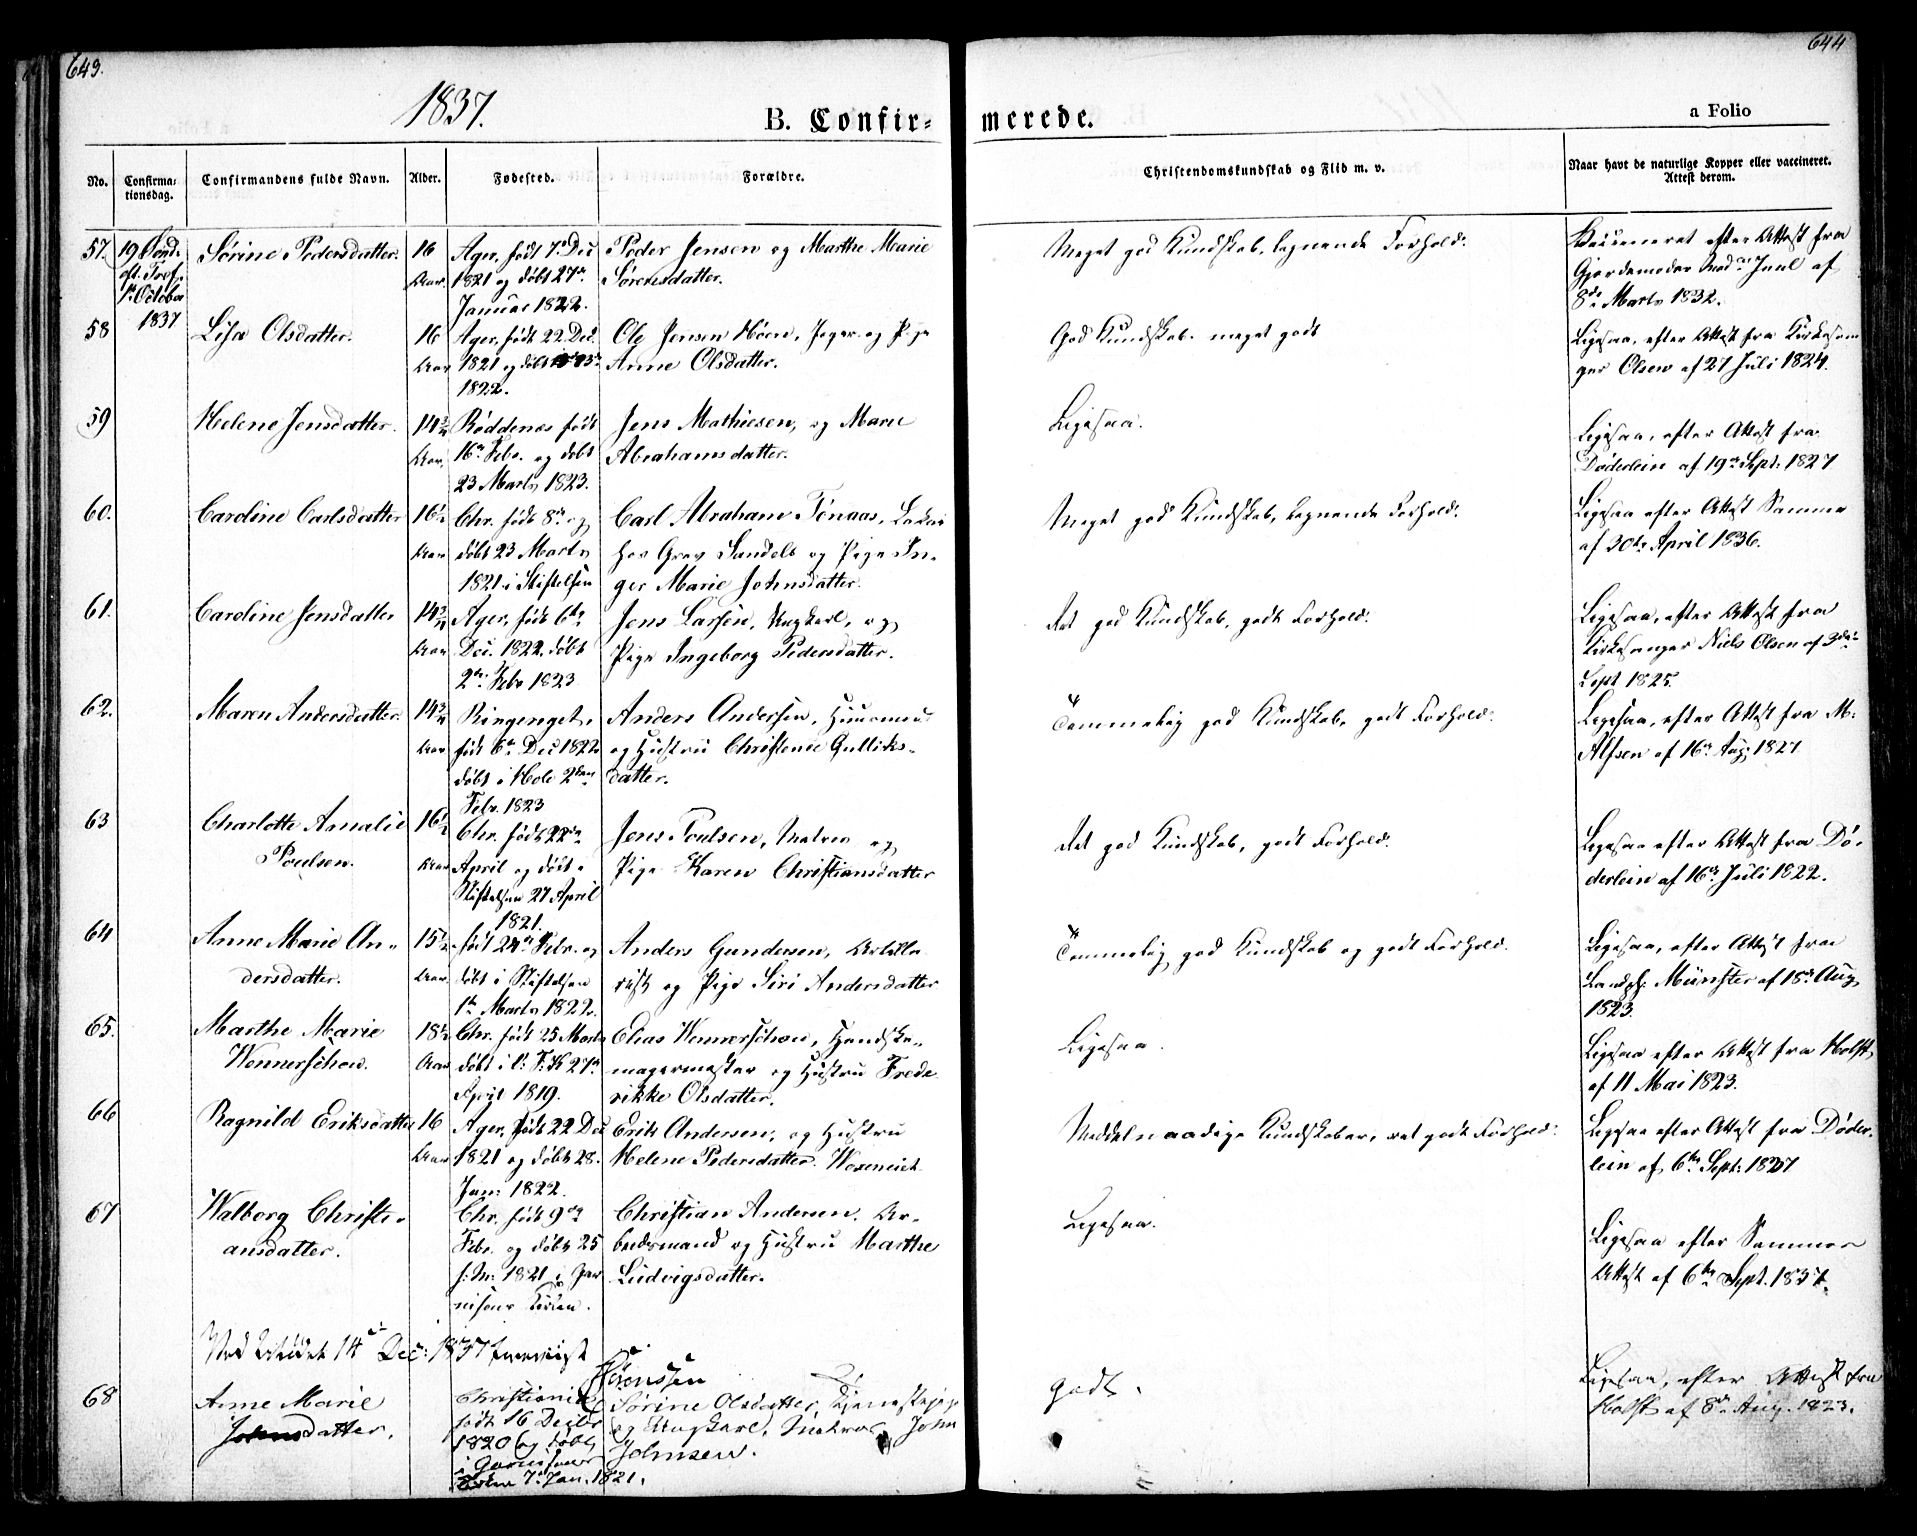 643.
644
1837.
B. Confir-
merede.
a Folio
No.
Confirma-
tionsdag.
Confirmandens fulde Navn.
Alder.
Fødested.
Forældre.
Christendomskundskab og Flid m. v.
Naar havt de naturlige Kopper eller vaccineret.
Attest derom.
57. 19 Sønd. Sørine Pedersdatter. 16 Ager, født 7de Dec Peder Jensen og Marthe Marie Meget god Kundskab, lignende Forhold. Vaccineret efter Attest fra
eft. Tref. Aar. 1821 og døbt 27de Sørensdatter. Gjordemoder Mad. Juul af
1st October Januar 1822. 8de Marts 1832.
1837
58 Lisa Olsdatter. 16 Ager, født 22 Dec. Ole Jensen og Pige God Kundskab. meget godt Ligesaa, efter Attest fra Kirkesan
Aar 1821 og døbt Anne Olsdatter. ger Olsen af 27 Juli 1824.
1822.
59 Helene Jensdatter. 14 3/4 Røddenæs født Jens Mathiesen, og Marie Ligesaa. Ligesaa, efter Attest fra
Aar. 16de Febr. og døbt Abrahamsdatter. Døderlein af 19de Sept. 1827
23 Marts 1823.
60. Caroline Carlsdatter 16 1/2 Chr. født 8de og Carl Abraham Tønaas, Meget god Kundskab, lignende Forhold. Ligesaa efter Attest Samme
Aar døbt 23 Marts hos Grev Sandels og Pige In- af 30te April 1836.
1821 i Stiftelsen ger Marie Johnsdatter.
61. Caroline Jensdatter 14 3/4 Ager, født 6te Jens Larsen, Ungkarl, og Ret god Kundskab, godt Forhold. Ligesaa, efter Attest fra
Aar Dec. 1822, døbt Pige Ingeborg Pedersdatter. Kirkesanger Niels Olsen af 3die
2den Febr 1823 Sept 1825.
62. Maren Andersdatter. 14 3/4 Ringeriget, Anders Andersen, Huusmand Temmelig god Kundskab, godt Forhold. Ligesaa, efter Attest fra M.
Aar født 6te Dec 1822 og Hustru Christense Gulliks- Alfsen af 16de Aug. 1827
døbt i Hole 2den datter.
Febr. 1823
63 Charlotte Amalie 16 1/2 Chr. født 22de Jens Poulsen, Matros og Ret god Kundskab, godt Forhold. Ligesaa efter Attest fra Dø-
Poulsen. Aar April og døbt i Pige Karen Christiansdatter derlein af 16de Juli 1822.
Stiftelsen 27 April
1821.
64 Anne Marie An- 15 1/2 født 24de Febr. og Anders Gundersen, Artille- Temmelig god Kundskab og godt Forhold. Ligesaa, efter Attest fra
dersdatter. Aar døbt i Stiftelsen rist og Pige Siri Andersdatter Landph. Münster af 18de Aug
1ste Marts 1822. 1823.
65. Marthe Marie 18 1/2 Chr. født 25 Marts Elias Wennerschou, Handske- Ligesaa. Ligesaa efter Attest fra Holst
Wennerschou. Aar døbt i 27de magermester og Hustru Frede af 11 Mai 1823.
April 1819. rikke Olsdatter.
66 Ragnild Eriksdatter 16 Ager, født 22 Dec Erik Andersen, og Hustru Middelmaadige Kundskaber, ret godt Forhold. Ligesaa efter Attest fra Døder-
Aar 1821 og døbt 28. Helene Pedersdatter. lein af 6te Sept. 1837
Jan. 1822.
67 Walborg Christi- Chr. født 9de Christian Andersen, Ar- Ligesaa. Ligesaa efter Sammes
ansdatter. Febr. og døbt 25 beidsmand og Hustru Marthe Attest af 6te Sept. 1837.
s. M. 1821 i Gar Ludvigsdatter.
nisons Kirken.
Ved 14de Dec. 1837
Sørenssen
68 Anne Marie Christiania Sørine Olsdatter, Tjenestepige godt. Ligesaa, efter Attest fra
Johnsdatter. født 16 Decbr og Ungkarl, Matros John Holst af 8de Aug. 1823.
1820 og døbt Johnsen.
i Garnisons
Kirken 7de Jan. 1821.